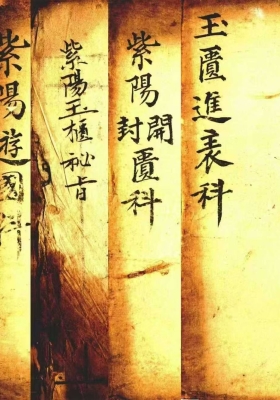 玉匱進表科
紫陽開封匱科
紫陽玉櫃秘旨
紫陽遊國科